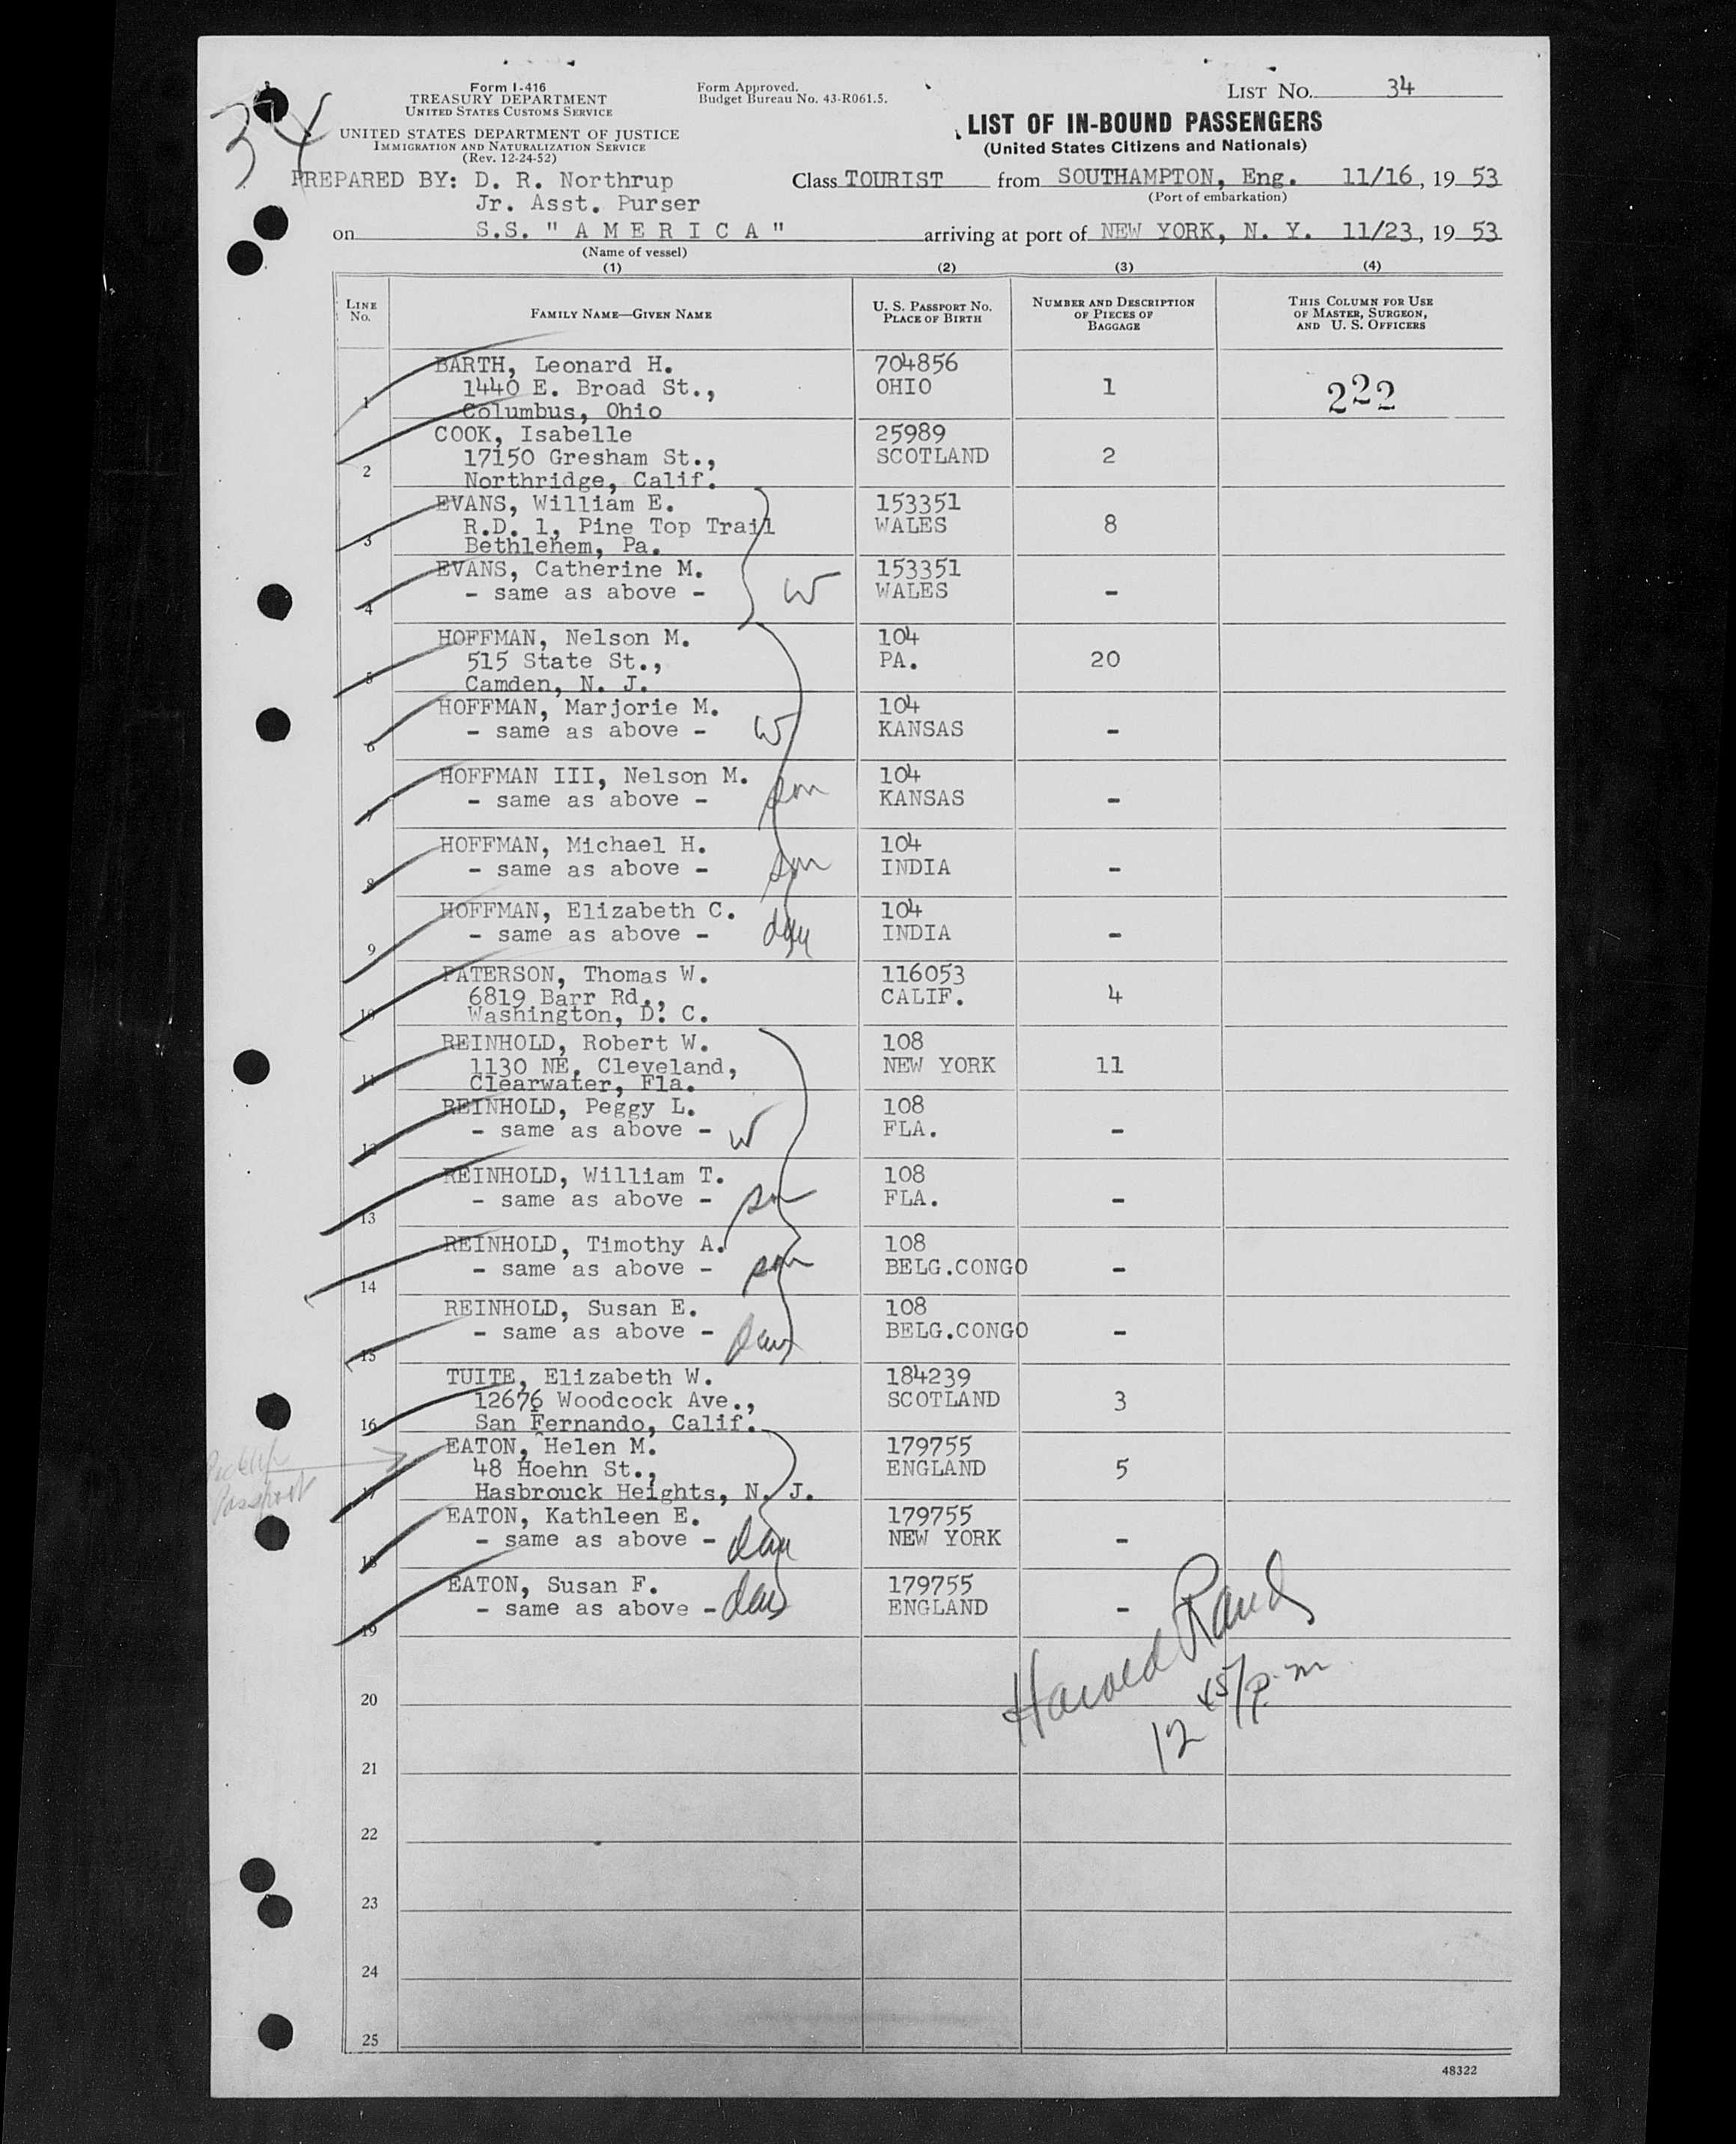 34
Form I-416
TREASURY DEPARTMENT
UNITED STATES CUSTOMS SERVICE
UNITED STATES DEPARTMENT OF JUSTICE
IMMIGRATION AND NATURALIZATION SERVICE
(Rev. 12-24-52)
Form Approved.
Budget Bureau No. 43-R061.5.
LIST NO. 34
LIST OF IN-BOUND PASSENGERS
(United States Citizens and Nationals)
PREPARED BY: D. R. Northrup
Jr. Asst. Purser
Class TOURIST from SOUTHAMPTON, Eng. 11/16, 19 53
(Port of embarkation)
on S.S. " A M E R I C A " arriving at port of NEW YORK, N. Y. 11/23, 19 53
(Name of vessel)
(1) (2) (3) (4)
LINE NO. FAMILY NAME—GIVEN NAME U. S. PASSPORT NO. PLACE OF BIRTH NUMBER AND DESCRIPTION OF PIECES OF BAGGAGE THIS COLUMN FOR USE OF MASTER, SURGEON, AND U. S. OFFICERS
BARTH, Leonard H. 704856
1 1440 E. Broad St., OHIO 1 222
Columbus, Ohio
COOK, Isabelle 25989
2 17150 Gresham St., SCOTLAND 2
Northridge, Calif.
EVANS, William E. 153351
3 R.D. 1, Pine Top Trail WALES 8
Bethlehem, Pa.
EVANS, Catherine M. 153351
4 - same as above - W WALES -
HOFFMAN, Nelson M. 104
5 515 State St., PA. 20
Camden, N. J.
HOFFMAN, Marjorie M. 104
6 - same as above - W KANSAS -
HOFFMAN III, Nelson M. 104
7 - same as above - son KANSAS -
HOFFMAN, Michael H. 104
8 - same as above - son INDIA -
HOFFMAN, Elizabeth C. 104
9 - same as above - dau INDIA -
PATERSON, Thomas W. 116053
10 6819 Barr Rd., CALIF. 4
Washington, D. C.
REINHOLD, Robert W. 108
11 1130 NE, Cleveland, NEW YORK 11
Clearwater, Fla.
REINHOLD, Peggy L. 108
12 - same as above - W FLA. -
REINHOLD, William T. 108
13 - same as above - son FLA. -
REINHOLD, Timothy A. 108
14 - same as above - son BELG.CONGO -
REINHOLD, Susan E. 108
15 - same as above - dau BELG.CONGO -
TUITE, Elizabeth W. 184239
16 12676 Woodcock Ave., SCOTLAND 3
San Fernando, Calif.
EATON, Helen M. 179755
17 48 Hoehn St., ENGLAND 5
Hasbrouck Heights, N. J.
Passport
EATON, Kathleen E. 179755
18 - same as above - dau NEW YORK -
EATON, Susan F. 179755
19 - same as above - dau ENGLAND -
Harold Rand
12 45/p.m
20
21
22
23
24
25
48322